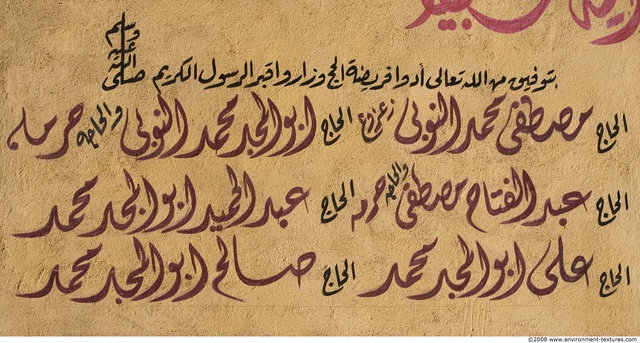 بتوفيق من الله تعالى أدوا فريضة الحج وزاروا قبر الرسول الكريم صلى الله عليه وسلم
الحاج مصطفى محمد النوبى زعزاع الحاج ابوالمجد محمد النوبى والحاجه حرمه
الحاج عبدالفتاح مصطفى والحاجه حرمه الحاج عبدالحميد ابوالمجد محمد
الحاج على ابوالمجد محمد الحاج صالح ابوالمجد محمد
©2008 www.environment-textures.com